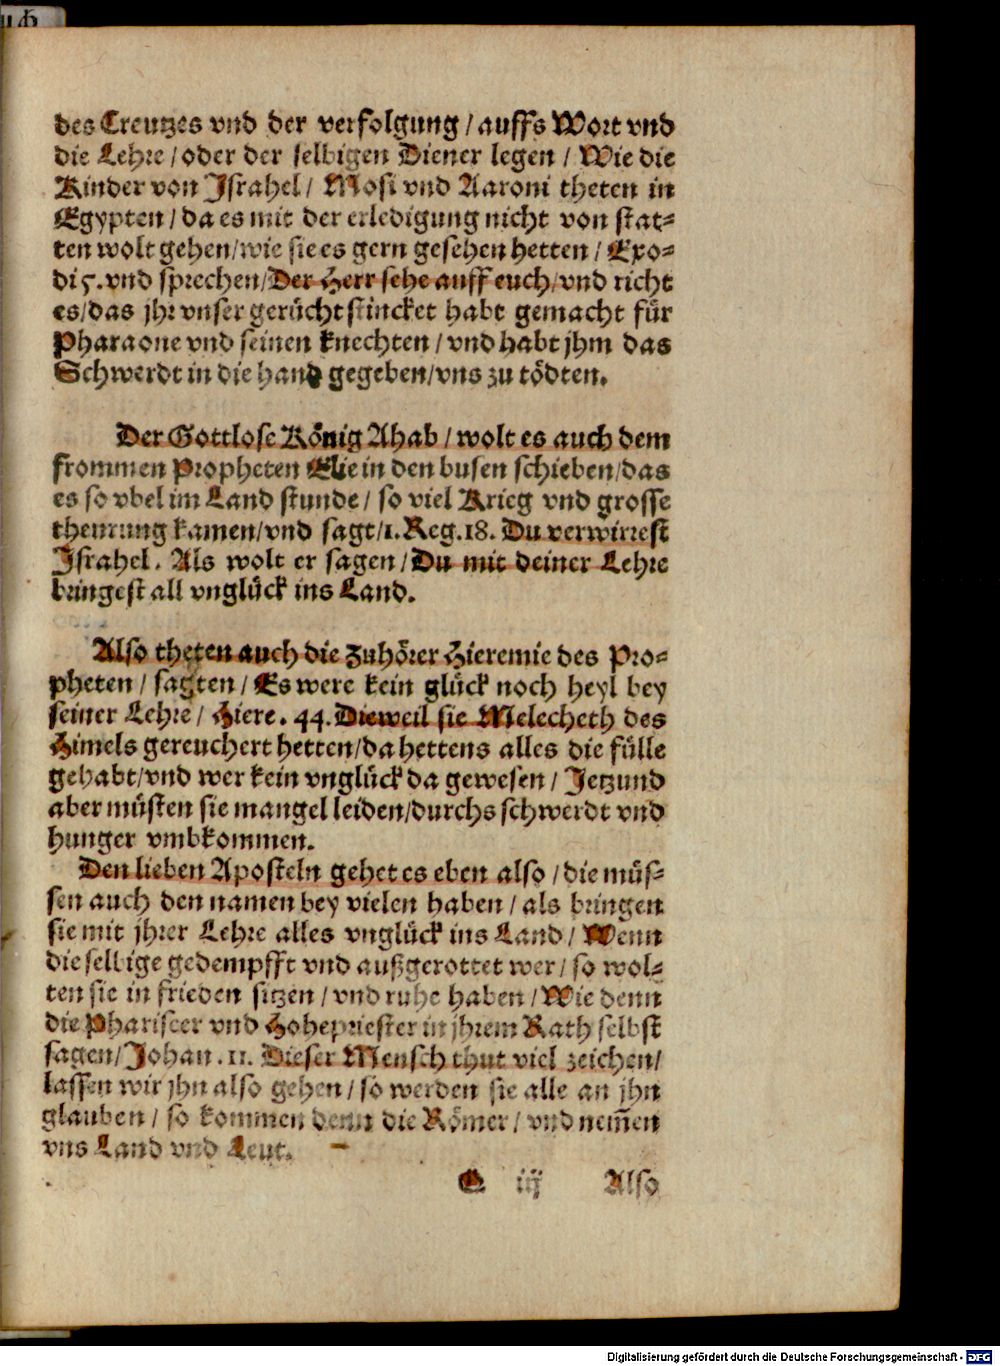 des Creutzes vnd der verfolgung / auffs Wort vnd
die Lehre / oder der selbigen Diener legen / Wie die
Kinder von Jsrahel / Mosi vnd Aaroni theten in
Egypten / da es mit der erledigung nicht von stat-
ten wolt gehen / wie sie es gern gesehen hetten / Exo-
di 5. vnd sprechen / Der Herr sehe auff euch / vnd richt
es / das jhr vnser gerücht stincket habt gemacht für
Pharaone vnd seinen knechten / vnd habt jhm das
Schwerdt in die hand gegeben / vns zu tödten.
Der Gottlose König Ahab / wolt es auch dem
frommen Propheten Elie in den busen schieben / das
es so vbel im Land stunde / so viel Krieg vnd grosse
thewrung kamen / vnd sagt / 1. Reg. 18. Du verwirrest
Jsrahel. Als wolt er sagen / Du mit deiner Lehre
bringest all vnglück ins Land.
Also theten auch die Zuhörer Hieremie des Pro-
pheten / sagten / Es were kein glück noch heyl bey
seiner Lehre / Hiere. 44. Dieweil sie Melecheth des
Himels gereuchert hetten / da hettens alles die fülle
gehabt / vnd wer kein vnglück da gewesen / Jetzund
aber müsten sie mangel leiden / durchs schwerdt vnd
hunger vmbkommen.
Den lieben Aposteln gehet es eben also / die müs-
sen auch den namen bey vielen haben / als bringen
sie mit jhrer Lehre alles vnglück ins Land / Wenn
die selbige gedempfft vnd außgerottet wer / so wol-
ten sie in frieden sitzen / vnd ruhe haben / Wie denn
die Phariseer vnd Hohepriester in jhrem Rath selbst
sagen / Johan. 11. Dieser Mensch thut viel zeichen /
lassen wir jhn also gehen / so werden sie alle an jhn
glauben / so kommen denn die Römer / vnd nem̃en
vns Land vnd Leut.
G iij Also
Digitalisierung gefördert durch die Deutsche Forschungsgemeinschaft - DFG